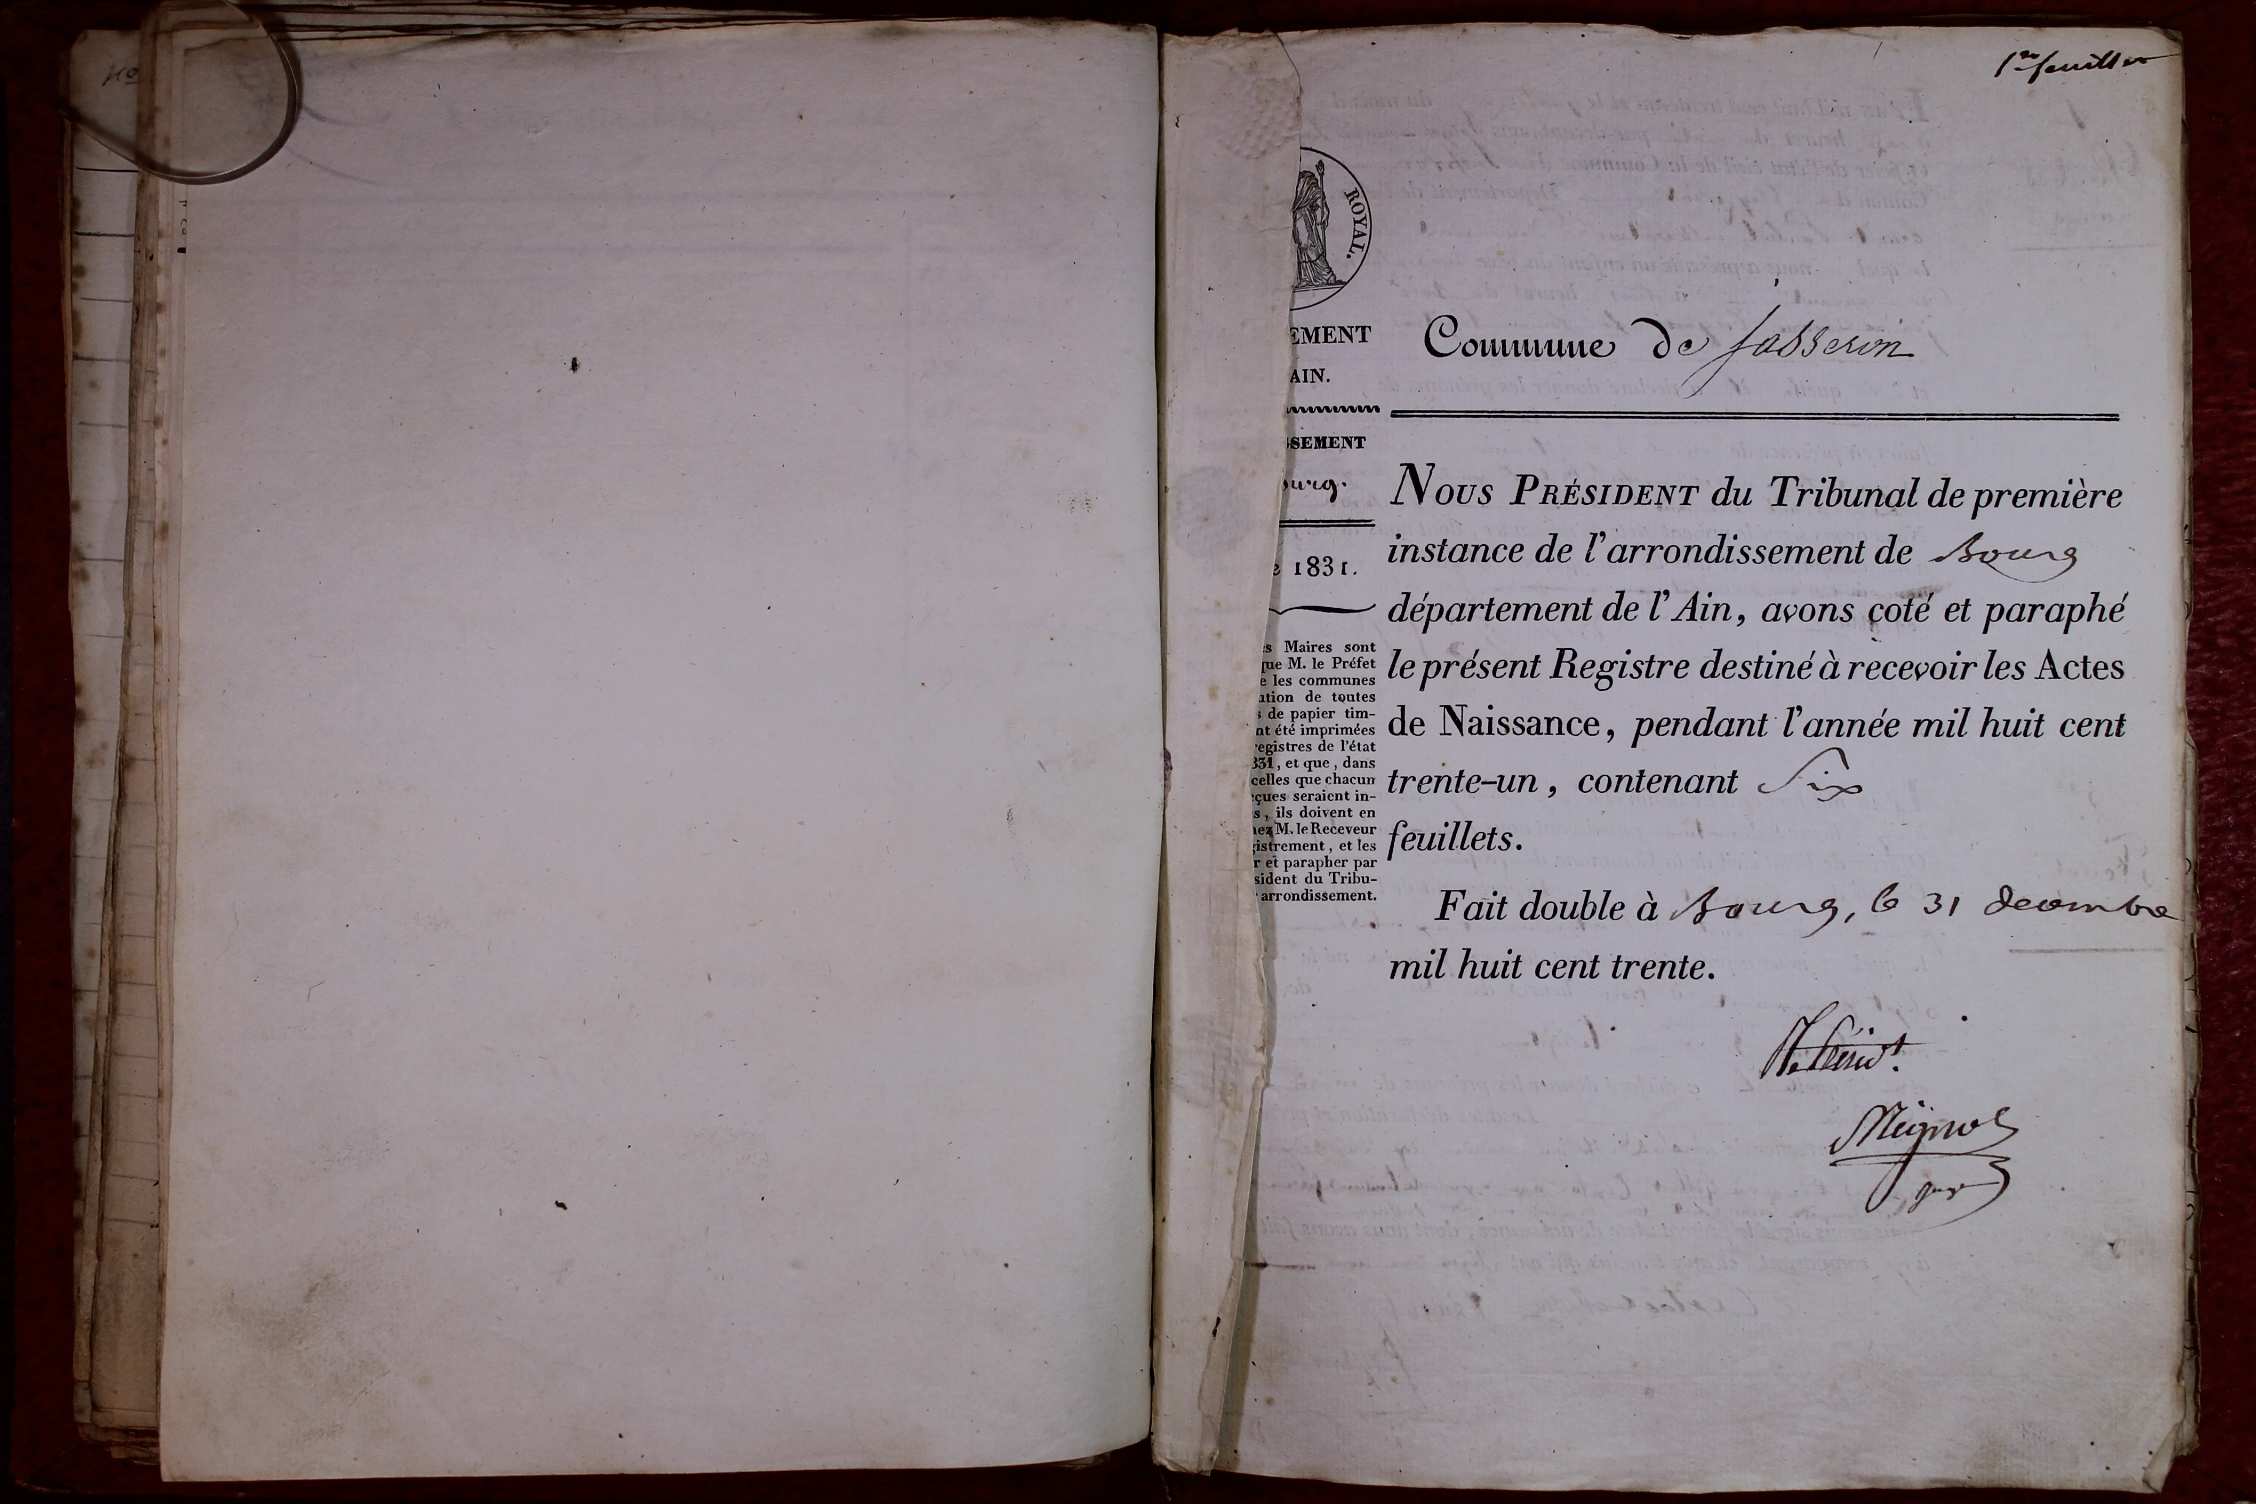 1er feuillet
ROYAL.
EMENT
AIN.
SSEMENT
ourg.
1831.
s Maires sont
que M. le Préfet
e les communes
ation de toutes
s de papier tim-
nt été imprimées
registres de l'état
831, et que, dans
celles que chacun
çues seraient in-
s, ils doivent en
hez M. le Receveur
gistrement, et les
r et parapher par
sident du Tribu-
arrondissement.
Commune de Jasseron
NOUS PRÉSIDENT du Tribunal de première
instance de l'arrondissement de Bourg
département de l'Ain, avons coté et paraphé
le présent Registre destiné à recevoir les Actes
de Naissance, pendant l'année mil huit cent
trente-un, contenant Six
feuillets.
Fait double à Bourg, le 31 decembre
mil huit cent trente.